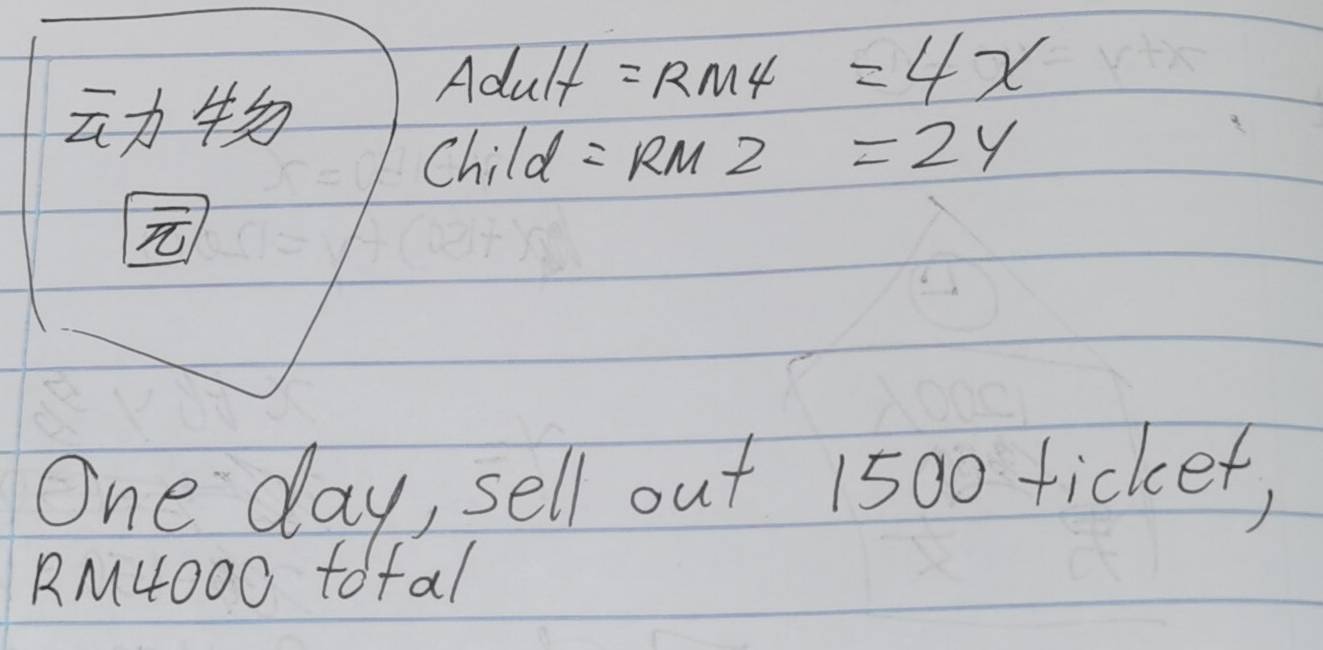 动物
园
Adult = RM4 = 4x
Child = RM 2 = 2y
One day, sell out 1500 ticket,
RM4000 total